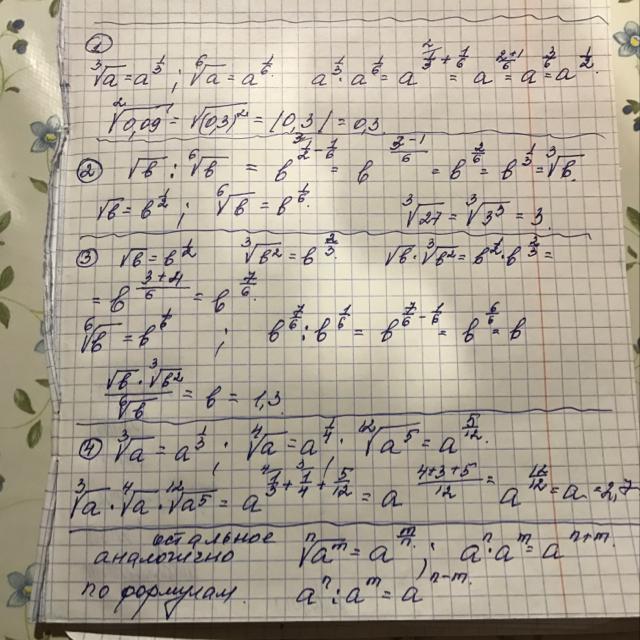 ①
∛a = a^(1/3) ; ⁶√a = a^(1/6). a^(1/3) · a^(1/6) = a^(1/3 + 1/6) = a^((2+1)/6) = a^(3/6) = a^(1/2).
²√0,09 = √(0,3)² = |0,3| = 0,3
② √в : ⁶√в = в^(1/2 - 1/6) = в^((3-1)/6) = в^(2/6) = в^(1/3) = ∛в.
√в = в^(1/2) ; ⁶√в = в^(1/6). ∛27 = ∛3³ = 3.
③ √в = в^(1/2) ∛в² = в^(2/3). √в · ∛в² = в^(1/2) · в^(2/3) =
= в^((3+4)/6) = в^(7/6).
⁶√в = в^(1/6) ; в^(7/6) : в^(1/6) = в^(7/6 - 1/6) = в^(6/6) = в
(√в · ∛в²)/(⁶√в) = в = 1,3.
④ ∛a = a^(1/3) ; ⁴√a = a^(1/4) ; ¹²√a⁵ = a^(5/12).
∛a · ⁴√a · ¹²√a⁵ = a^(1/3 + 1/4 + 5/12) = a^((4+3+5)/12) = a^(12/12) = a = 2,7
остальное
аналогично ⁿ√aᵐ = a^(m/n) ; aⁿ · aᵐ = a^(n+m).
по формулам. aⁿ : aᵐ = a^(n-m).